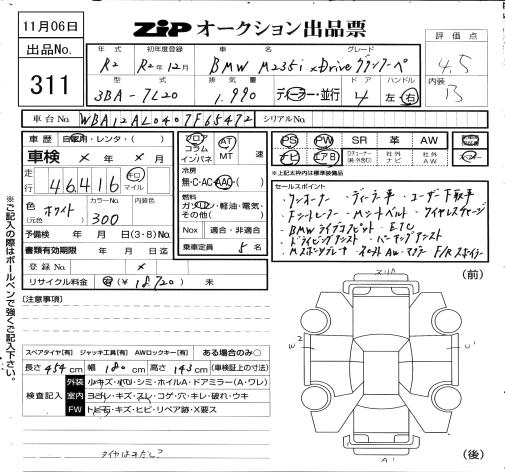 11月06日
ZIP オークション出品票
出品No.
311
年式 初年度登録 車名 グレード
R2 R2年12月 BMW M235i xDrive グランクーペ
型式 排気量 ドア ハンドル
3BA-7L20 1,990 ディーラー・並行 4 左・右
評価点
4.5
内装
B
車台No. WBA12AL0407F65472 シリアルNo.
車歴 自家用・レンタ・( )
車検 × 年 × 月
走行 46,416 キロ マイル
色 (元色) ホワイト カラーNo. 300 内装色
予備検 年 月 日(3・8)No.
書類有効期限 年 月 日
登録No. ×
リサイクル料金 (¥ 18,720 ) 未
フロア コラム インパネ AT MT 速
冷房
無・C・AC・AAC・( )
燃料
ガソリン・軽油・電気・その他( )
Nox 適合・非適合
乗車定員 5 名
PS PW SR 革 AW
ナビ エアB 社外ナビ 社外AW
*上記太枠内は標準装備品
セールスポイント
・ワンオーナー ・ディーラー車 ・ユーザー下取車
・Fシートヒーター ・Mシートベルト ・ワイヤレスチャージ
・BMWライブコックピット ・ETC
・ドライビングアシスト ・パーキングアシスト
※ご記入の際はボールペンで強くご記入下さい。
[注意事項]
スペアタイヤ[有] ジャッキ工具[有] AWロックキー[有] ある場合のみ○
長さ 454 cm 幅 180 cm 高さ 143 cm (車検証上の寸法)
検査記入
外装 小キズ・凹リ・シミ・ホイルA・ドアミラー(A・ワレ)
室内 ヨゴレ・キズ・スレ・コゲ・穴・キレ・破れ・ウキ
FW トビ石・キズ・ヒビ・リペア跡・X要ス
(前)
(後)
W2
U1
A1